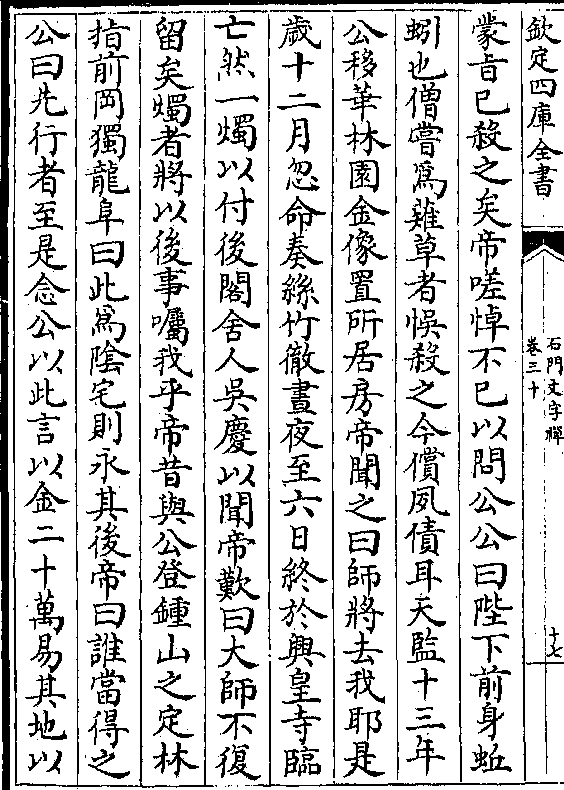 欽定四庫全書
石門文字禪
卷三十
十七
蒙旨已殺之矣帝嗟悼不已以問公公曰陛下前身蚯
蚓也僧嘗爲薙草者悞殺之今償夙債耳天監十三年
公移華林園金像置所居房帝聞之曰師將去我耶是
歲十二月忽命奏絲竹徹晝夜至六日終於興皇寺臨
亡然一燭以付後閣舍人吳慶以聞帝歎曰大師不復
留矣燭者將以後事囑我乎帝昔與公登鍾山之定林
指前岡獨龍阜曰此爲陰宅則永其後帝曰誰當得之
公曰先行者至是念公以此言以金二十萬易其地以